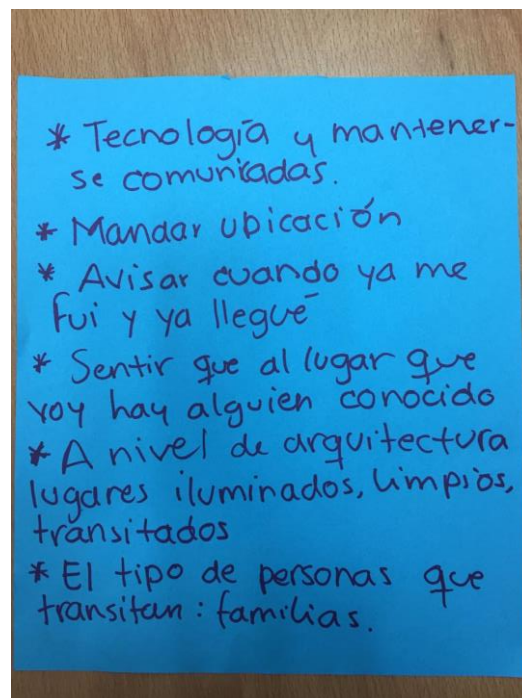 * Tecnología y mantener-
se comunicadas.
* Mandar ubicación
* Avisar cuando ya me
fui y ya llegué
* Sentir que al lugar que
voy hay alguien conocido
* A nivel de arquitectura
lugares iluminados, limpios,
transitados
* El tipo de personas que
transitan: familias.